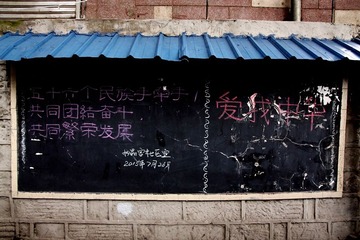 五十六个民族手牵手
共同团结奋斗
共同繁荣发展
2015年7月20日
爱我中华